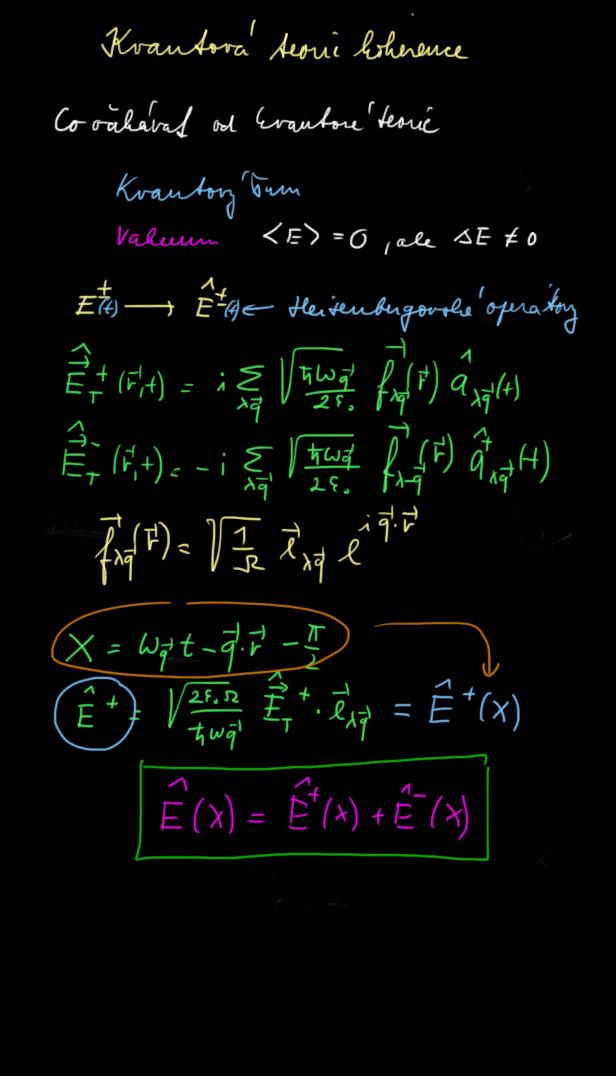 Kvantová teorie koherence
Co očekávat od kvantové teorie
Kvantový šum
Vakuum <E> = 0, ale ΔE ≠ 0
E^±(t) → Ê^±(t) ← Heisenbergovské operátory
\hat{\vec{E}}_T^+(\vec{r},t) = i ∑_{λ\vec{q}} √(ħω_{\vec{q}}/2ε₀) \vec{f}_{λ\vec{q}}(\vec{r}) â_{λ\vec{q}}(t)
\hat{\vec{E}}_T^-(\vec{r},t) = -i ∑_{λ\vec{q}} √(ħω_{\vec{q}}/2ε₀) \vec{f}_{λ-\vec{q}}(\vec{r}) â^+_{λ\vec{q}}(t)
\vec{f}_{λ\vec{q}}(\vec{r}) = √(1/Ω) \vec{e}_{λ\vec{q}} e^{i\vec{q}·\vec{r}}
X = ω_{\vec{q}}t - \vec{q}·\vec{r} - π/2
Ê^+ = √(2ε₀Ω/ħω_{\vec{q}}) \hat{\vec{E}}_T^+ · \vec{e}_{λ\vec{q}} = Ê^+(X)
Ê(X) = Ê^+(X) + Ê^-(X)